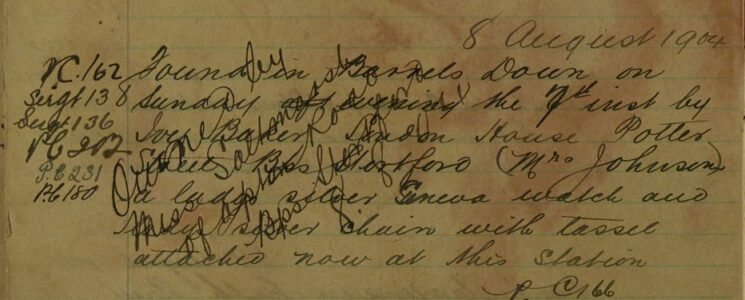 8 August 1904
P.C. 162
Sergt 138
Sergt 136
P.C 202
P.C 231
P.C 180
Found in Barrels Down on
Sunday evening the 7th inst by
Baker, London House Potter
Street Bps Stortford (Mrs Johnson)
a ladys silver Geneva watch and
silver chain with tassel
attached now at this Station
P.C 166
Owned by
Miss
of Road